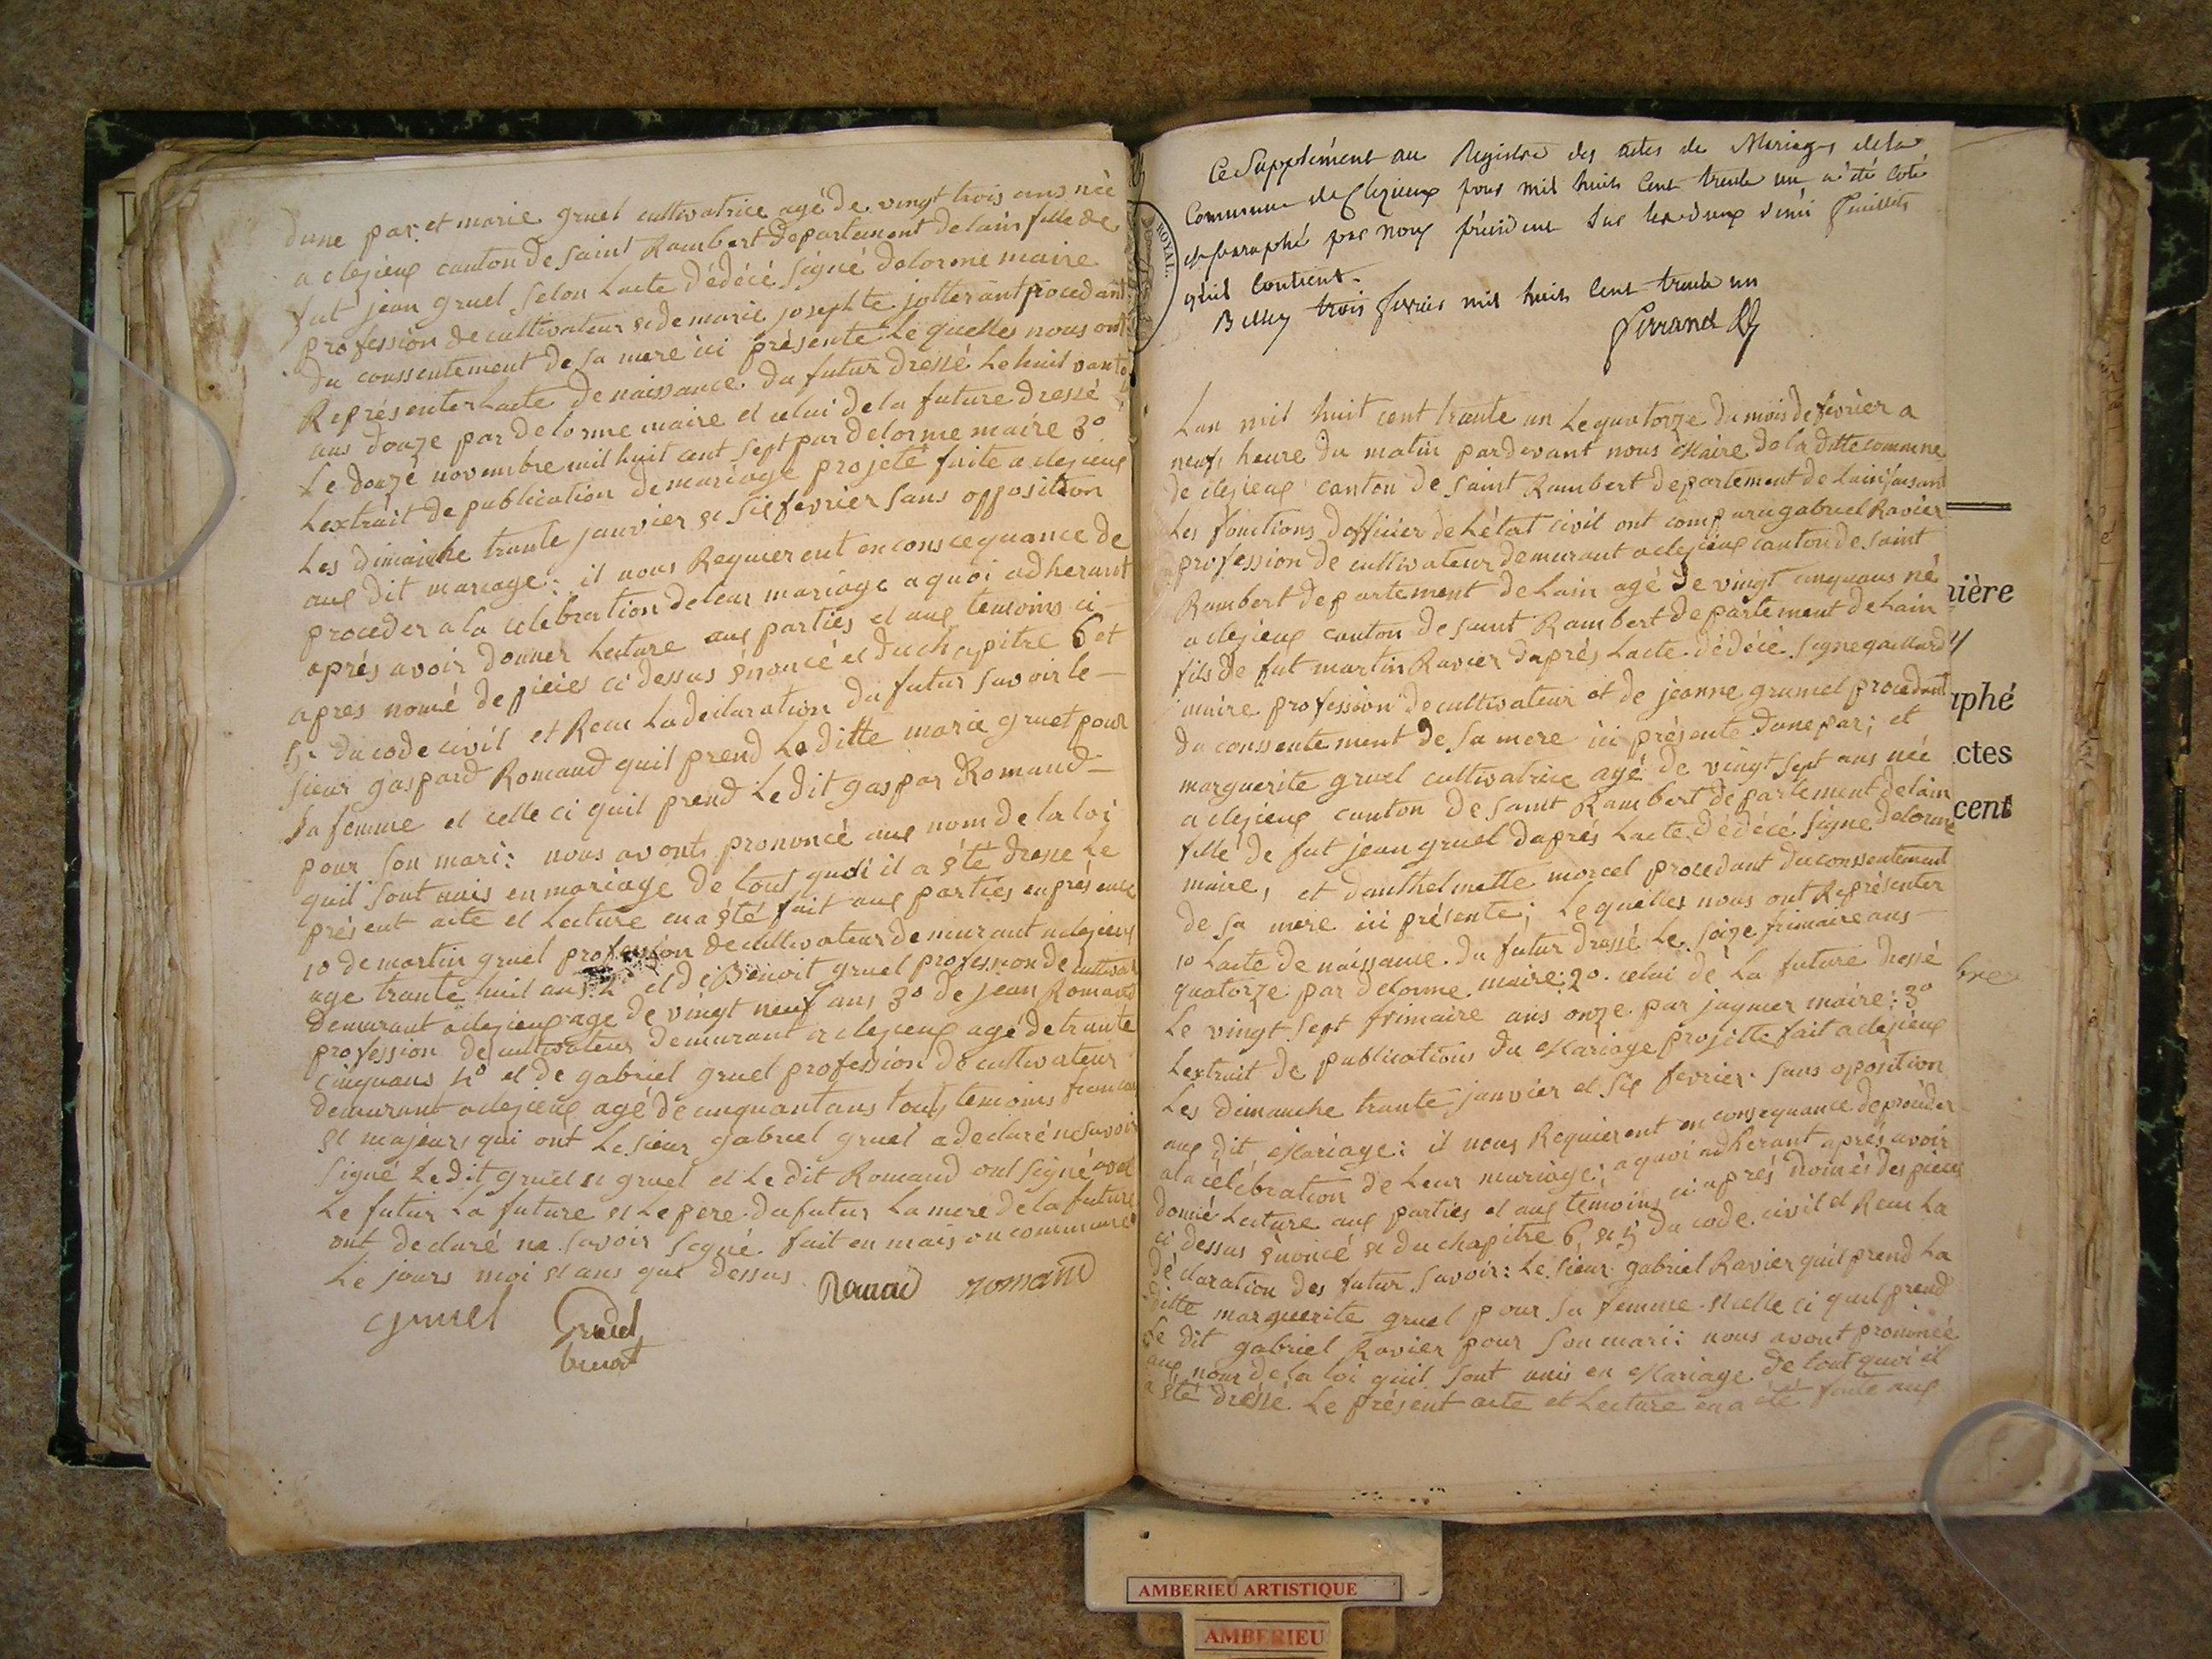 dune par. et marie gruel cultivatrice agé de vingt trois ans née
a clezieux canton de saint Rambert departement de lain fille de
fut jean gruel selon Lacte dédécé signé delorme maire
profession de cultivateur et de marie josephte jolterant procedant
du conssentement de sa mere ici présente Le quelles nous ont
Représenter Lacte de naissance du futur dressé Le huit vante
ans douze par delorme maire et celui de la future dressé
Le douze novembre mil huit cent sept par delorme maire 3º
Lextrait de publication de mariage projeté faite a clezieux
Les dimanche trante janvier et six fevrier sans opposition
aux dit mariage: il nous Requierent en conscequance de
proceder a la célébration de leur mariage a quoi adherant
aprés avoir donner Lecture aux parties et aux temoins ci-
apres nomé de pieces ci dessus énoncé et du chapitre 6 et
5. du code civil et Recu La déclaration du futur savoir le-
sieur gaspard Romand quil prend La ditte marie gruel pour
sa femme et celle ci quil prend Le dit gaspar Romand-
pour son mari: nous avonts prononcé aux nom de la loi
quil sont unis en mariage de tout quoi il a été dresse Le
présent acte et Lecture en a été fait aux parties en présence
1º de martin gruel profession de cultivateur demurant a clezieux
age trante huit ans 2º et de Benoit gruel profession de cultivateur
demurant a clezieux age de vingt neuf ans 3º de jean Romand
profession de cultivateur demurant a clezieux agé de trante
cinquans 4º et de gabriel gruel profession de cultivateur
demurant a clezieux agé de cinquantans tous temoins francais
et majeurs qui ont Le sieur gabriel gruel a declaré ne savoir
signé Le dit gruel et gruel et Le dit Romand ont signé avec
Le futur La future et Le pere du futur La mere de la future
ont declaré ne savoir signé. fait en maison commune
Le jours moi et ans que dessus
Romand romand
gruel
Gruel
benoit
ROYAL.
Ce Supplément au Registre des actes de Mariages de la
Commune de Clezieux pour mil huit Cent trente un a été coté
et paraphé par nous président sur les deux demi feuillets
qu'il Contient.
Belley trois fevrier mil huit Cent trente un
Perrand
Lan mil huit cent trante un Le quatorze du mois de fevrier a
neufs heure du matin par devant nous Maire de la ditte commune
de clezieux canton de saint Rambert departement de Lain faisant
Les fonctions dofficier de Létat civil ont comparu gabriel Ravier
profession de cultivateur demurant a clezieux canton de saint
Rambert departement de Lain agé de vingt cinquans né
a clezieux canton de saint Rambert departement de Lain
fils de fut martin Ravier daprés Lacte dédécé signe gaillard
maire profession de cultivateur et de jeanne grumel procedant
du conssentement de sa mere ici présente dune par; et
marguerite gruel cultivatrice agé de vingt sept ans née
a clezieux canton de saint Rambert departement de lain
fille de fut jean gruel daprés Lacte dédécé signe delorme
maire, et danthelmette morcel procedant du conssentement
de sa mere ici présente; Lequelles nous ont Représenter
1º Lacte de naissance du futur dressé Le seize frimaire ans-
quatorze par delorme maire: 2º. celui de La future dressé
Le vingt sept frimaire ans onze par jaquier maire: 3º
Lextrait de publications du Mariage projétte fait a clezieux
Les dimanche trante janvier et six fevrier sans oposition
aux dit Mariage: il nous Requierent en consequance de procéder
a la célébration de Leur mariage; a quoi adherant aprés avoir
donné Lecture aux parties et aux temoins ci aprés només des pieces
ci dessus énoncé et du chapitre 6 et 5 du code civil et Recu La
déclaration des futur savoir: Le sieur gabriel Ravier quil prend La
ditte marguerite gruel pour sa femme et celle ci quil prend
Le dit gabriel Ravier pour son mari: nous avont prononcé
aux nom de la loi quil sont unis en Mariage de tout quoi il
a été dressé Le présent acte et Lecture en a été faite aux
ière
aphé
ctes
cent
bre
AMBERIEU ARTISTIQUE
AMBERIEU